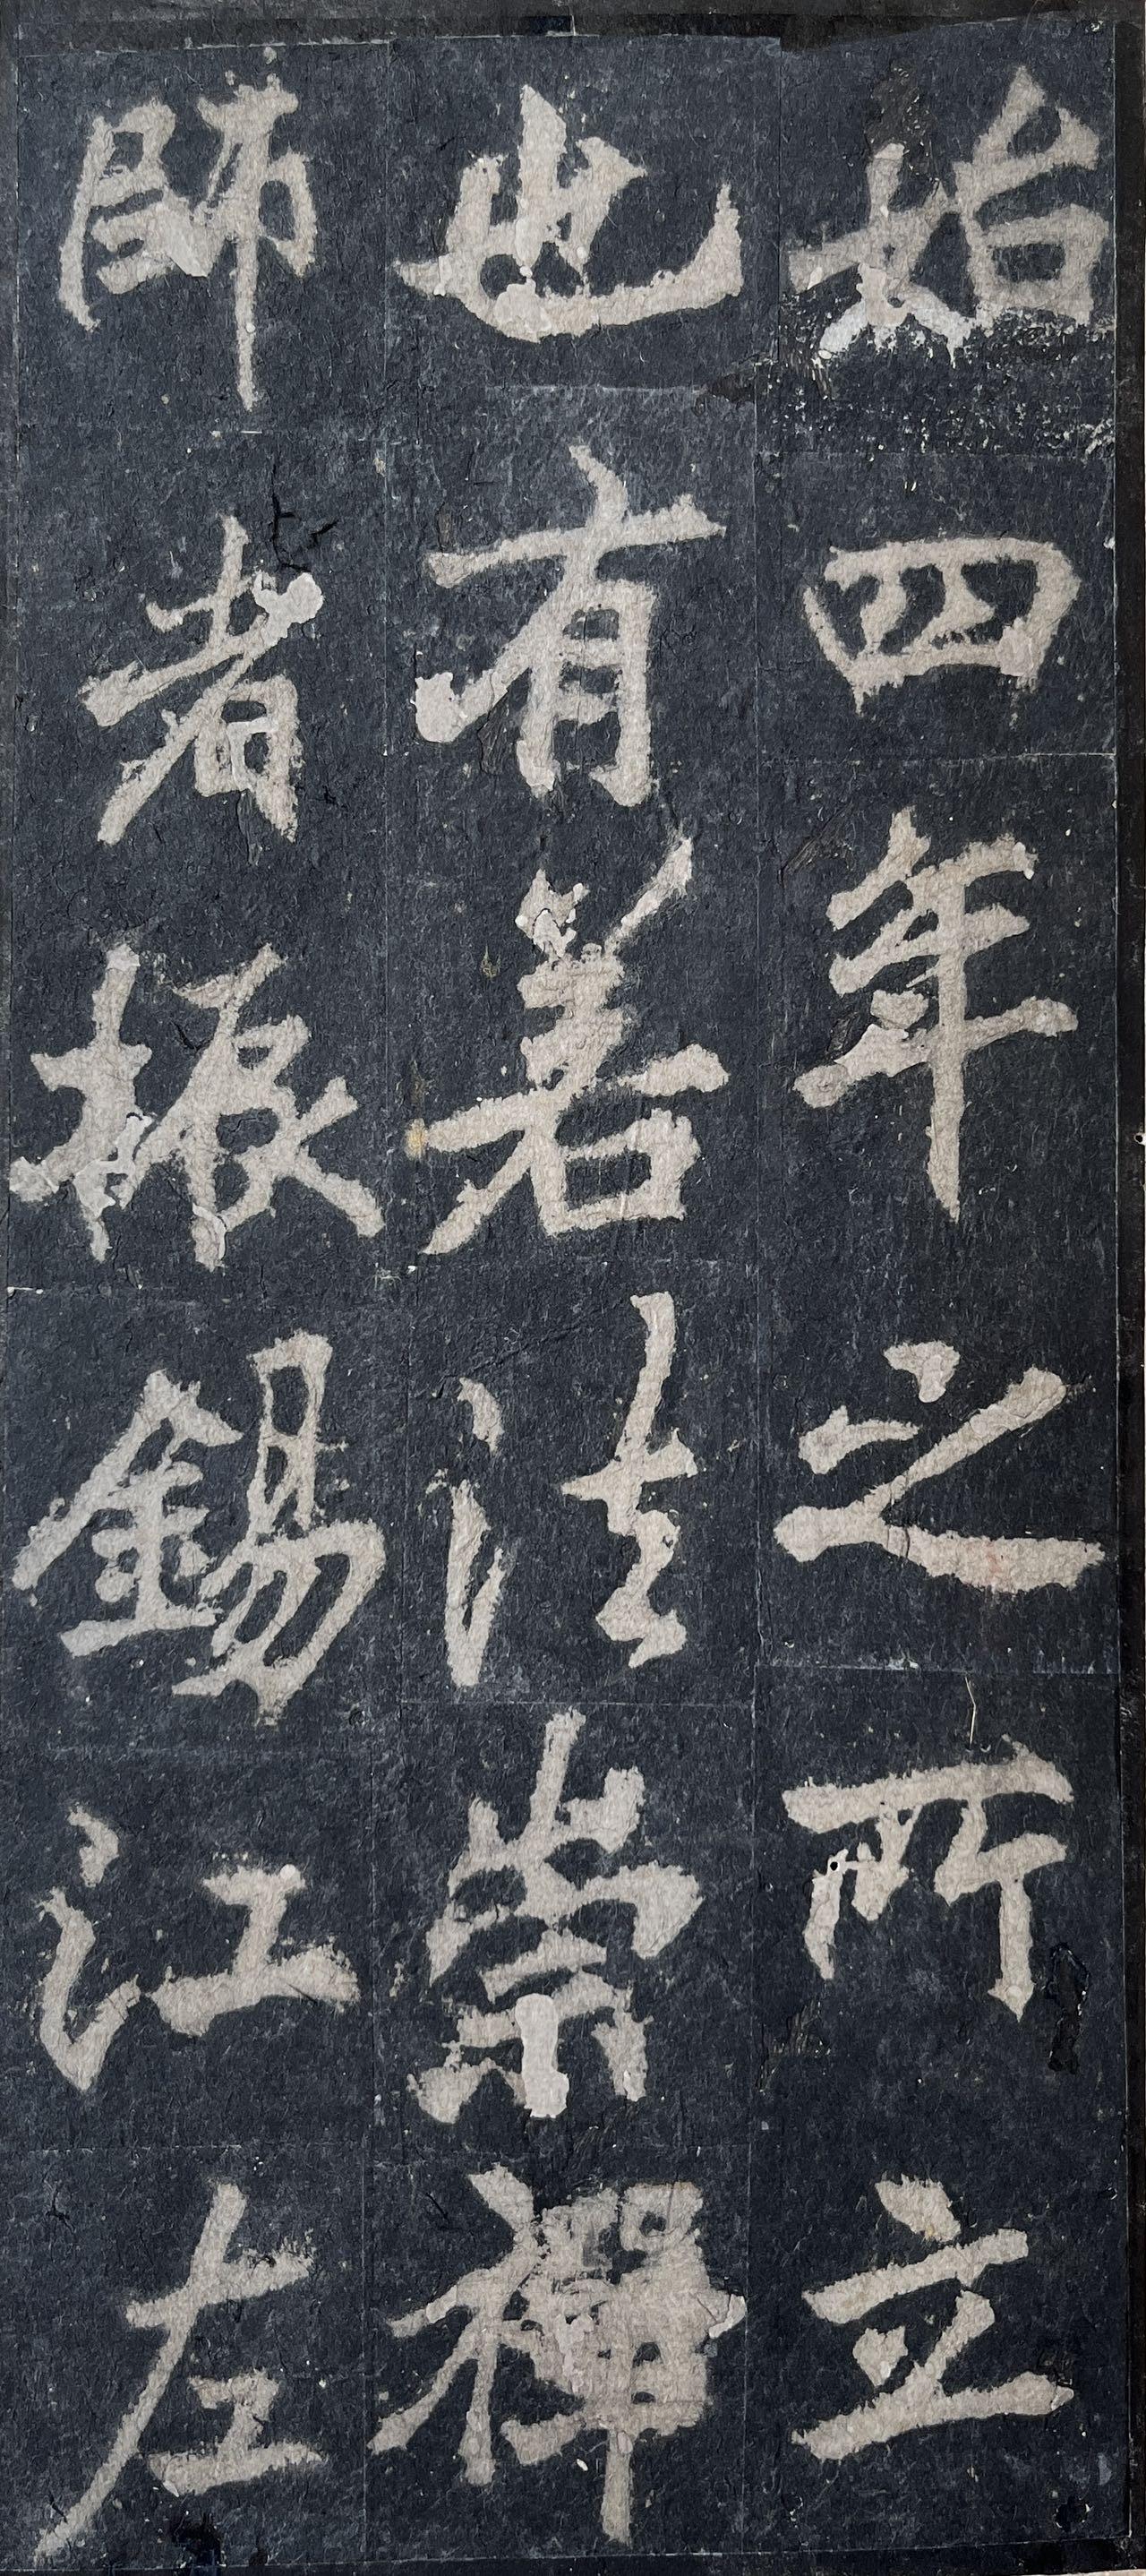 始四年之所立
也有若法崇禪
師者振錫江左